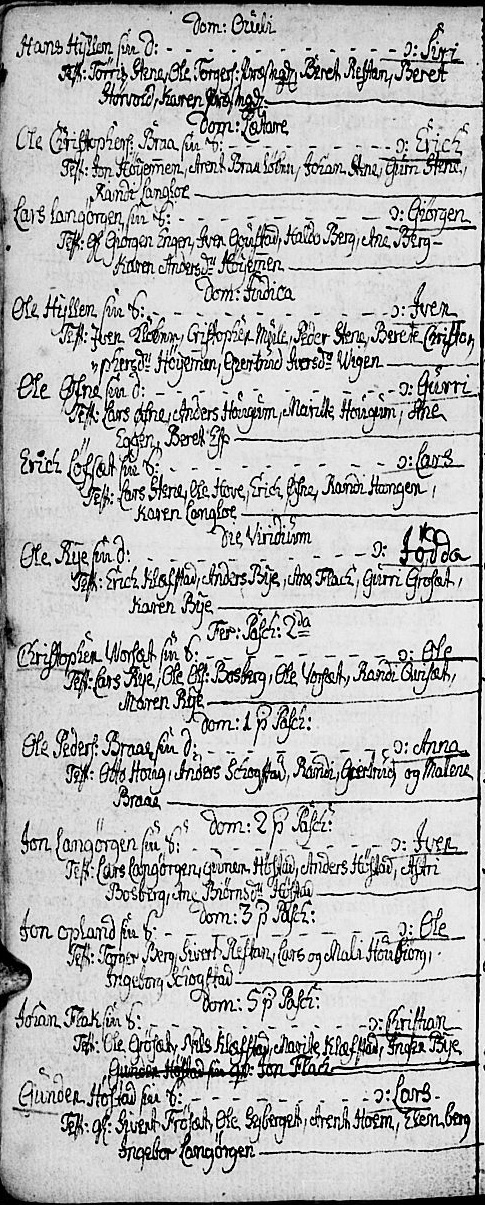 Dom: Oculi
Hans Hyllem sin d: - - - - - - - - ɔ: Siri
Test: Torris Stene, Ole Torgers: Beret Restan, Beret
Horvold, Karen
Dom: Lætare
Ole Christophers: Braa sin S: - - - - - - - ɔ: Erich
Test: Jon Höyemen, Arent Braa Johan Stene, Guri Stene,
Randi Langloe
Lars Langörgen sin S: - - - - - - - ɔ: Giörgen
Test: Giörgen Engen, Iven Goustad, Haldo Berg, Ane Berg
Karen Andersdr Höyemen
Dom: Iudica
Ole Hyllem sin S: - - - - - - - ɔ: Iven
Test: Iven Christopher Mylle, Peder Stene, Berete Christop
phersdr Höyemen, Giertrud Iversdr Wigen
Ole Ofne sin d: - - - - - - - ɔ: Gurri
Test: Lars Ofne, Anders Hougum, Marite Hougum, Ane
Eggen, Beret Esp
Erich Löfsæt sin S: - - - - - - - ɔ: Lars
Test: Lars Stene, Ole Hove, Erich Ofne, Randi Hangen,
Karen Langloe
Die Viridium
Ole Rye sin d: - - - - - - - ɔ:
Test: Erich Klæfstad, Anders Bye, Ane Flach, Gurri Grosæt,
Karen Bye
Fer: Pasch: 2da
Christopher Worsæt sin S: - - - - - - - ɔ: Ole
Test: Lars Rye, Ole Ols: Bosberg, Ole Vorsæt, Randi Qvisæt,
Maren Rye
Dom: 1 p Pasch:
Ole Peders: Braae sin d: - - - - - - - ɔ: Anna
Test: Otto Houg, Anders Schogstad, Randi, Giertrud og Malene
Braae
Dom: 2 p Pasch:
Jon Langörgen sin S: - - - - - - - ɔ: Iver
Test: Lars Langörgen, Gunner Höstad, Anders Höstad, Astri
Bosberg, Ane Biörnsdr Höstad
Dom: 3 p Pasch:
Jon Opland sin S: - - - - - - - ɔ: Ole
Test: Torger Berg, Sivert Restan, Lars og Mali Houbum,
Ingeborg Schogstad
Dom: 5 p Pasch:
Johan Flak sin S: - - - - - - - ɔ: Christian
Test: Ole Grösæt, Nils Klæfstad, Marite Klæfstad, Inger Bye
Jon Flach
Gunder Höfstad sin S: - - - - - - - ɔ: Lars
Test: Sivert Frösæt, Ole Arent Hoem, Elen berg
Ingebor Langörgen